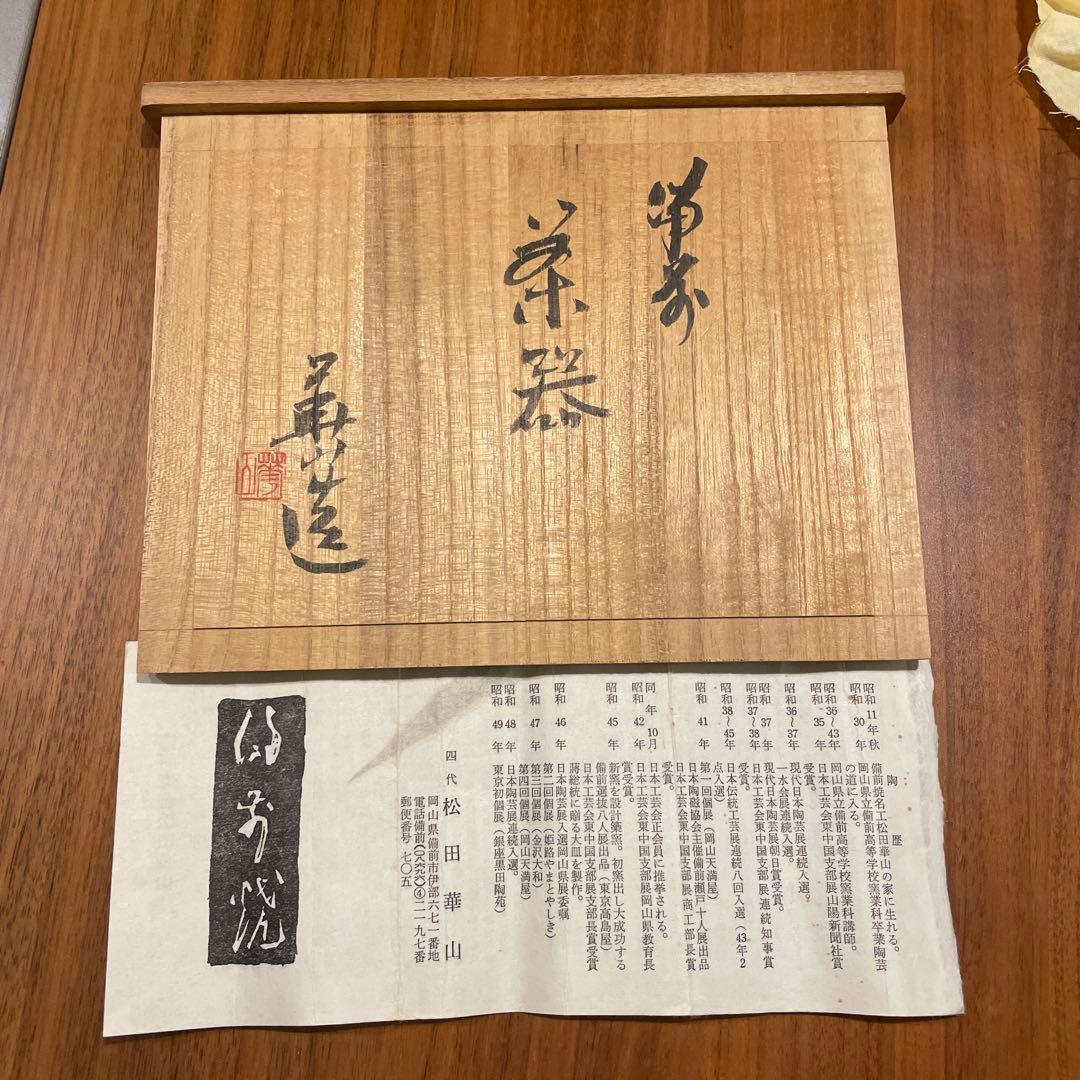 備前
茶器
華山造
華山
陶歴
昭和11年秋 備前焼名工松田華山の家に生れる。
昭和30年 岡山県立備前高等学校窯業科卒業陶芸
の道に入る。
昭和36~43年 岡山県立備前高等学校窯業科講師。
昭和35年 日本工芸会東中国支部展山陽新聞社賞
受賞。
昭和36~37年 現代日本陶芸展連続入選。
一水会展連続入選。
昭和37年 現代日本陶芸展朝日賞受賞。
昭和37~38年 日本工芸会東中国支部展連続知事賞
受賞。
昭和38~45年 日本伝統工芸展連続八回入選(43年2
点入選)
昭和41年 第一回個展(岡山天満屋)
日本陶磁協会主催備前瀬戸十人展出品
日本工芸会東中国支部展商工部長賞
受賞。
同年10月 日本工芸会正会員に推挙される。
昭和42年 日本工芸会東中国支部展岡山県教育長
賞受賞。
昭和45年 新窯を設計築窯。初窯出し大成功する
備前選抜八人展出品(東京高島屋)
日本工芸会東中国支部展支部長賞受賞
蔣総統に贈る大皿を製作。
昭和46年 日本陶芸展入選岡山県展委嘱
第二回個展(姫路やまとやしき)
昭和47年 第三回個展(金沢大和)
第四回個展(岡山天満屋)
昭和48年 日本陶芸展連続入選。
昭和49年 東京初個展(銀座黒田陶苑)
四代 松田華山
岡山県備前市伊部六七一番地
電話備前(〇八六九六)④二一九七番
郵便番号 七〇五
備前焼